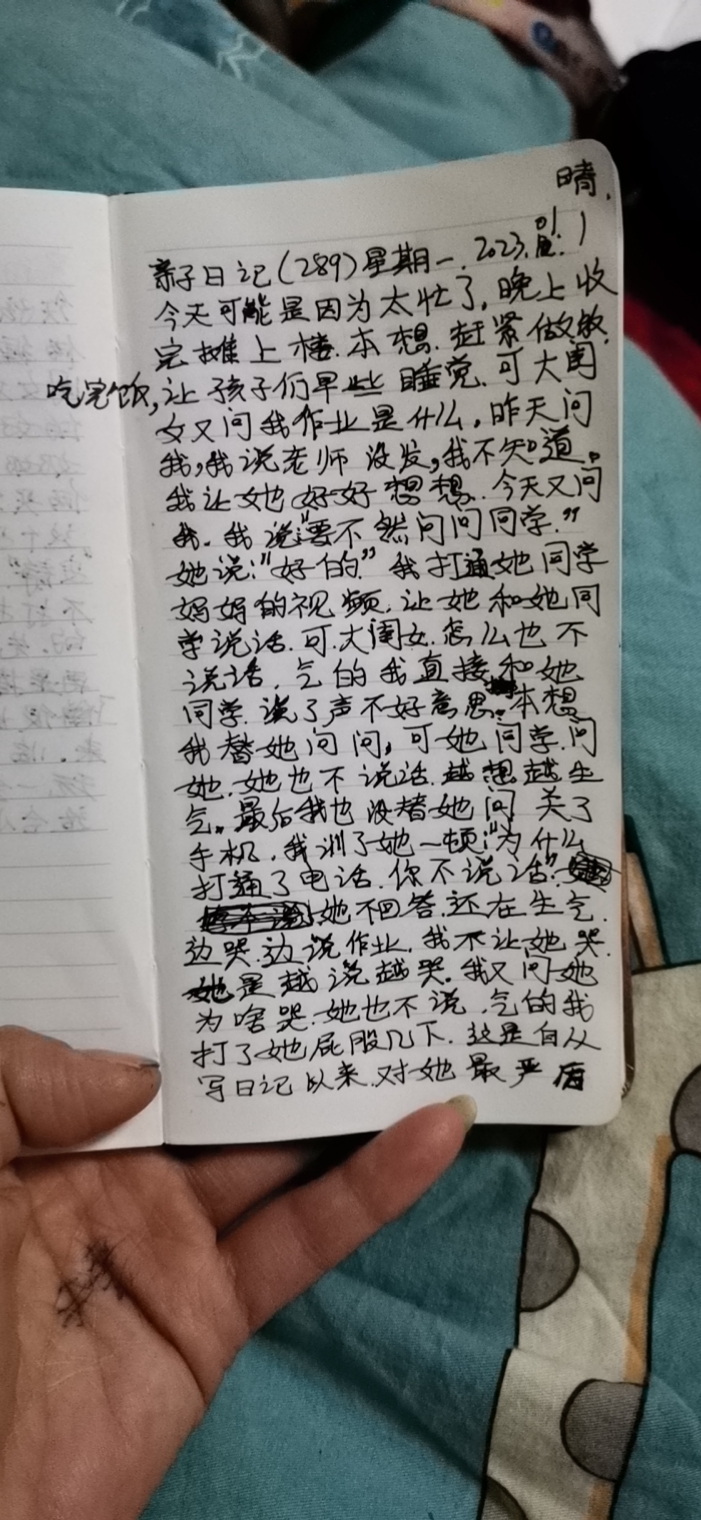 晴.
亲子日记(289)星期一. 2023.
今天可能是因为太忙了, 晚上收
完摊上楼. 本想. 赶紧做饭
吃完饭, 让孩子们早些睡觉. 可大闺
女又问我作业是什么, 昨天问
我, 我说老师没发, 我不知道。
我让她好好想想. 今天又问
我. 我说:"要不然问问同学."
她说:"好的" 我打通她同学
妈妈的视频. 让她和她同
学说话. 可. 大闺女. 怎么也不
说话. 气的我直接和她
同学. 说了声不好意思. 本想
我替她问问, 可她同学问
她. 她也不说话. 越想越生
气. 最后我也没替她问. 关了
手机. 我训了她一顿:"为什么
打通了电话. 你不说话".
她不回答. 还在生气.
边哭边说作业. 我不让她哭.
她是越说越哭. 我又问她
为啥哭. 她也不说. 气的我
打了她屁股几下. 这是自从
写日记以来. 对她最严厉